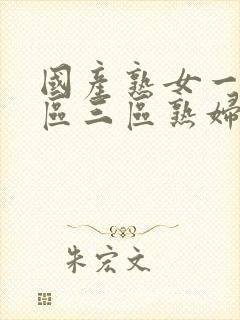 國產熟女一
區三區熟婦
朱宏文